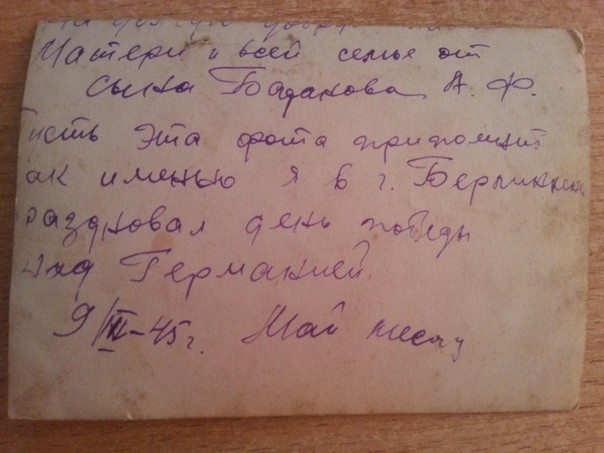 На долгую
Матери и всей семье от
сына Бадакова А. Ф.
усть эта фота припомнит
ак именно я в г. Берлине
раздновал день победы
над Германией.
9/III-45г. Май месяц